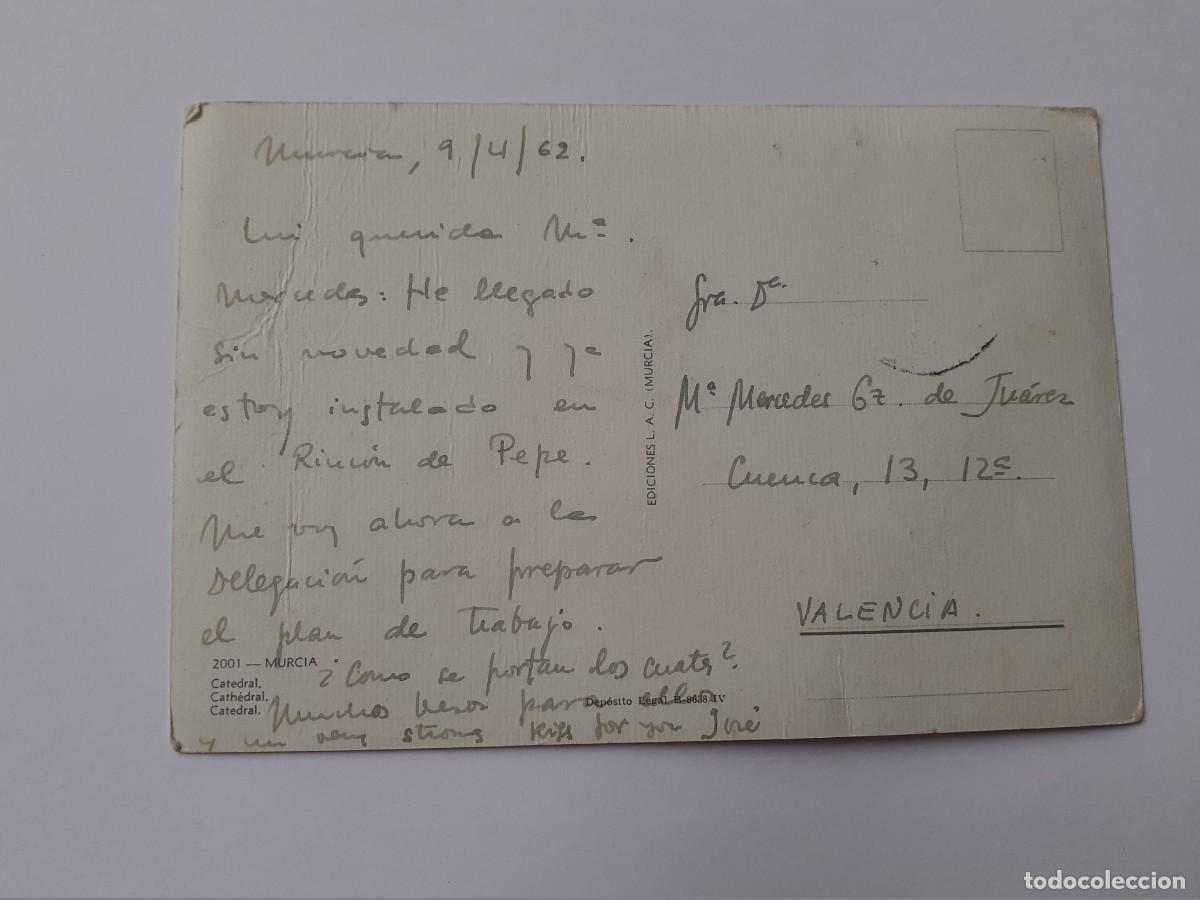 Murcia, 9/4/62.
Mi querida Mª
Mercedes: He llegado
sin novedad y ya
estoy instalado en
el Rincón de Pepe.
Me voy ahora a la
Delegación para preparar
el plan de trabajo.
¿Como se portan los cuatro?
Muchos besos para ellos
y un very strong kiss for you José
2001 — MURCIA
Catedral.
Cathédral.
Catedral.
Depósito Legal B-8638/IV
EDICIONES L. A. C. (MURCIA).
Sra. Dª.
Mª Mercedes Gz. de Juárez
Cuenca, 13, 12ª.
VALENCIA.
todocoleccion